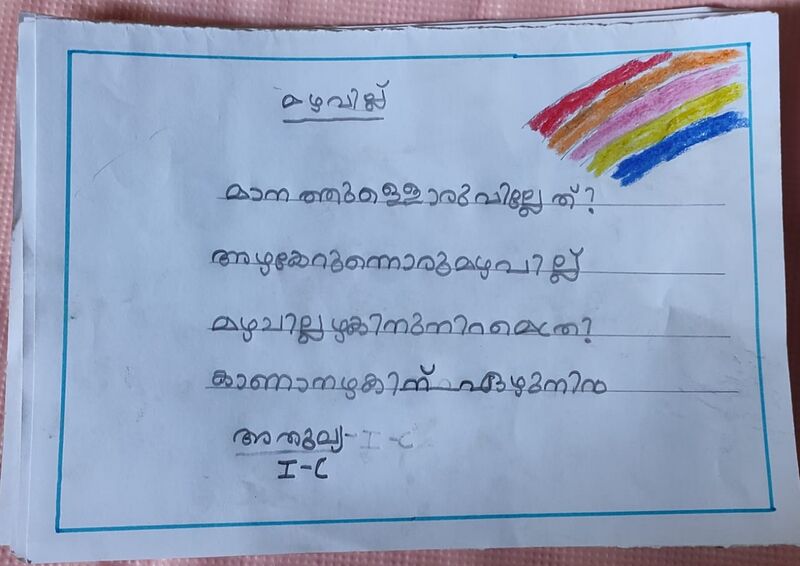 മഴവില്ല്
മാനത്തുള്ളൊരുവില്ലേത്?
അഴകേറുന്നൊരുമഴവില്ല്
മഴവില്ലഴകിനുനിറമെത്ര?
കാണാനഴകിന് ഏഴുനിറം
അതുല്യ-I-C
I-C